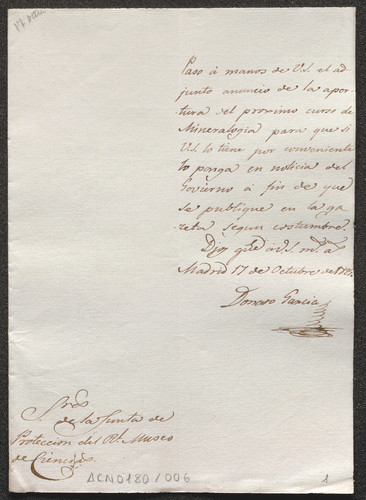 Paso à manos de V.S. el ad-
junto anuncio de la aper-
tura del proximo curso de
Mineralogia para que si
V.S. lo tiene por conveniente
lo ponga en noticia del
Govierno á fin de que
se publique en la ga
ceta segun costumbre.
Dios gue à V.S. ms. as.
Madrid 17 de Octubre de
Donoso Garcia
Sres.
de la Junta de
Proteccion del Rl. Museo
de Ciencias.
ACN0180/006
1